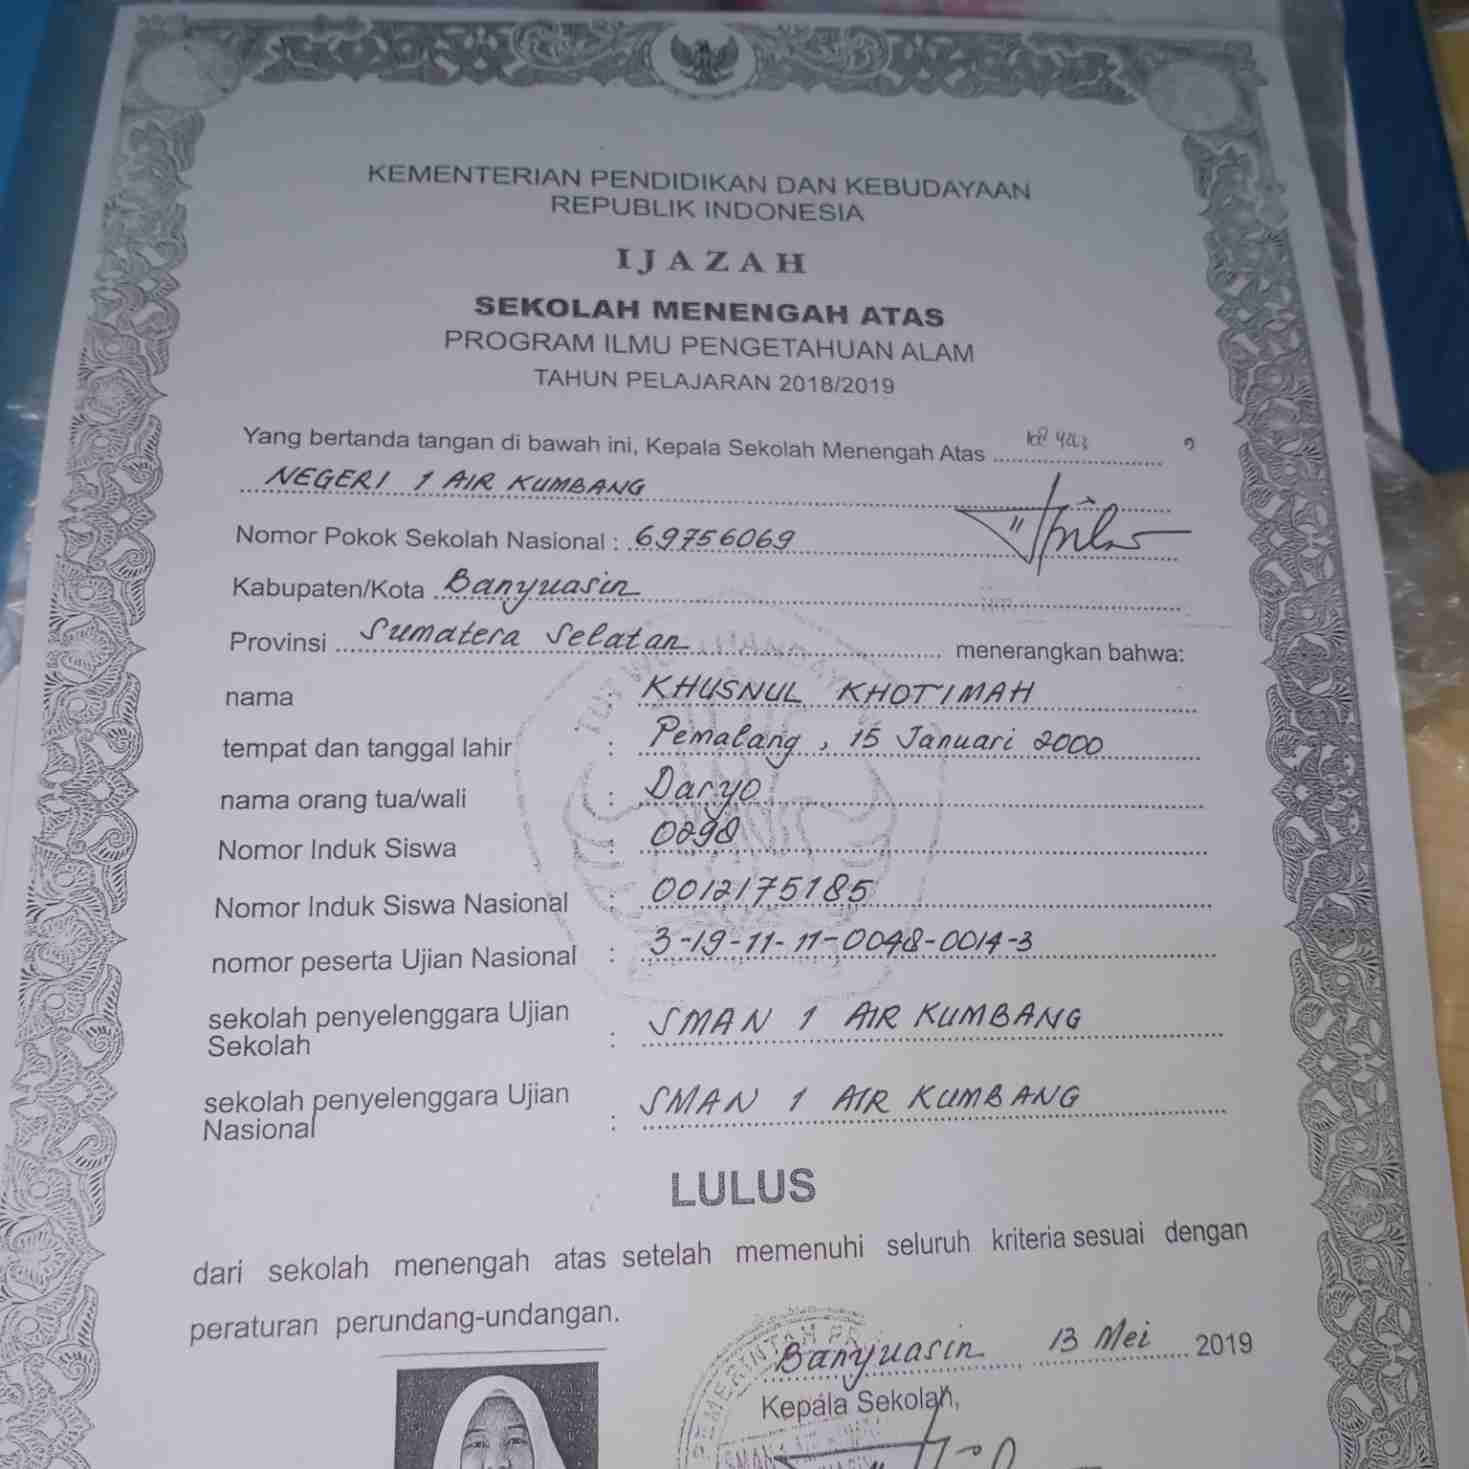 KEMENTERIAN PENDIDIKAN DAN KEBUDAYAAN
REPUBLIK INDONESIA
IJAZAH
SEKOLAH MENENGAH ATAS
PROGRAM ILMU PENGETAHUAN ALAM
TAHUN PELAJARAN 2018/2019
Yang bertanda tangan di bawah ini, Kepala Sekolah Menengah Atas
NEGERI 1 AIR KUMBANG
Nomor Pokok Sekolah Nasional : 69756069
Kabupaten/Kota Banyuasin
Provinsi Sumatera Selatan menerangkan bahwa:
nama : KHUSNUL KHOTIMAH
tempat dan tanggal lahir : Pemalang, 15 Januari 2000
nama orang tua/wali : Daryo
Nomor Induk Siswa : 0298
Nomor Induk Siswa Nasional : 0012175185
nomor peserta Ujian Nasional : 3-19-11-11-0048-0014-3
sekolah penyelenggara Ujian
Sekolah : SMAN 1 AIR KUMBANG
sekolah penyelenggara Ujian
Nasional : SMAN 1 AIR KUMBANG
LULUS
dari sekolah menengah atas setelah memenuhi seluruh kriteria sesuai dengan
peraturan perundang-undangan.
Banyuasin, 13 Mei 2019
Kepala Sekolah,